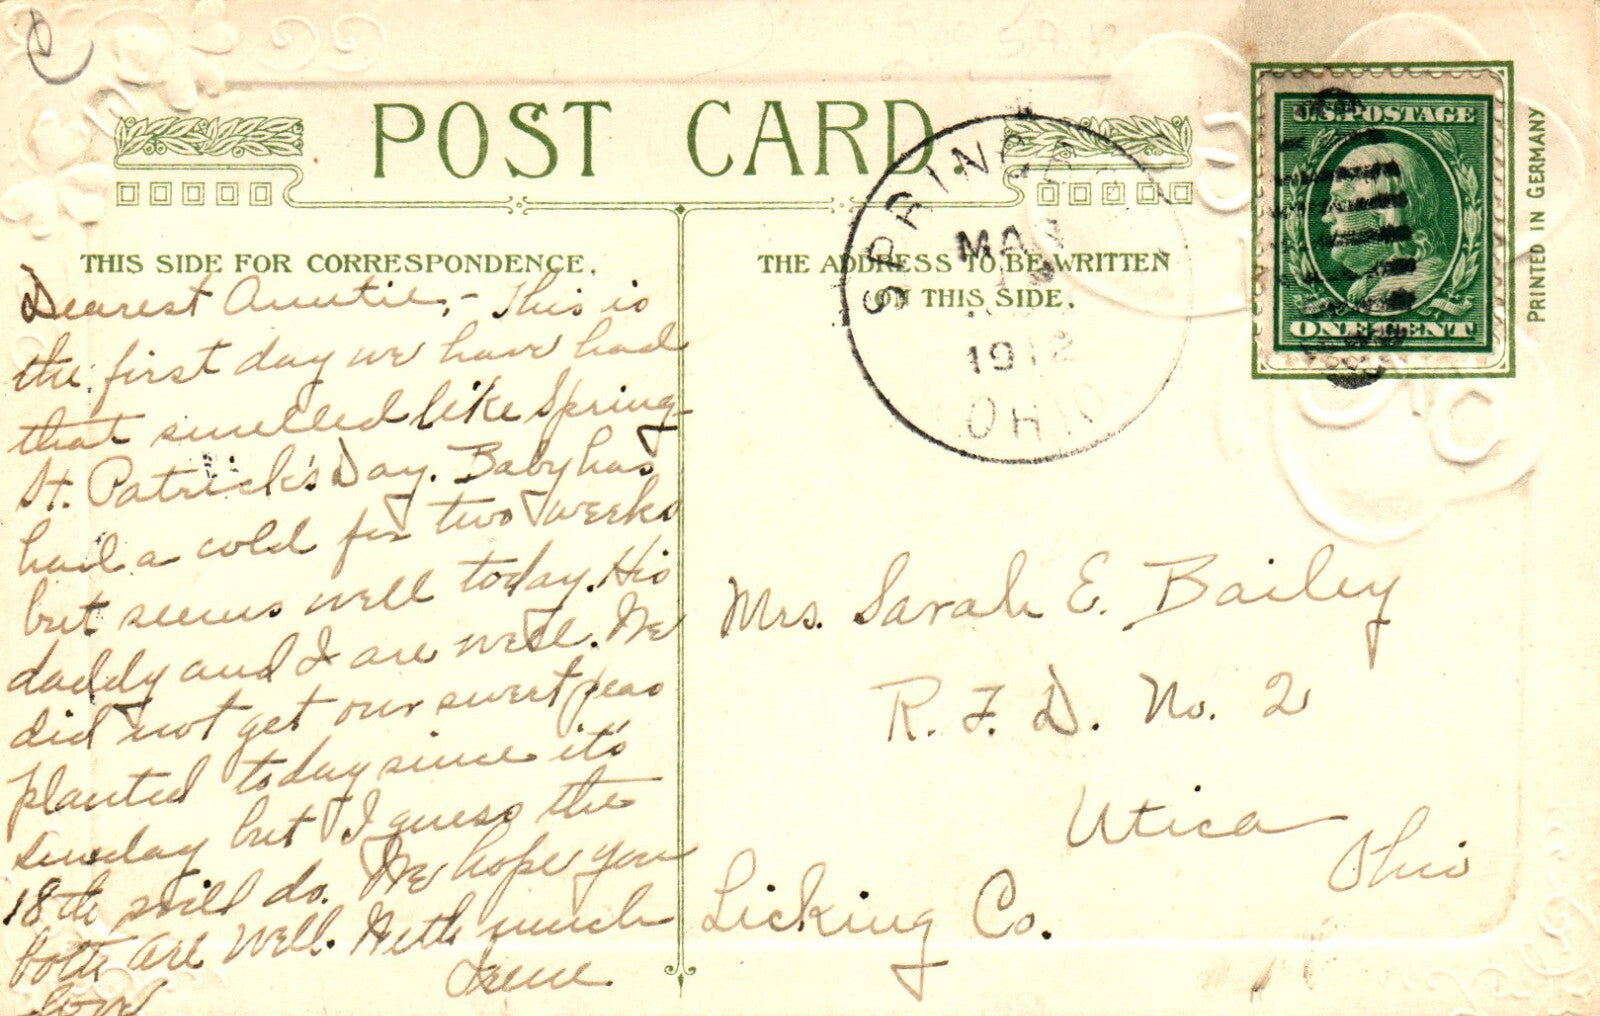 POST CARD.
THIS SIDE FOR CORRESPONDENCE.
Dearest Auntie,- This is
the first day we have had
that smelled like Spring-
St. Patrick's Day. Baby has
had a cold for two weeks
but seems well today. His
daddy and I are well. We
did not get our sweet peas
planted today since it's
Sunday but I guess the
18th will do. We hope you
both are well. With much
love Irene.
THE ADDRESS TO BE WRITTEN
ON THIS SIDE.
SPRING
MAR
1912
OHIO
U.S. POSTAGE
ONE CENT
PRINTED IN GERMANY
Mrs. Sarah E. Bailey
R. F. D. No. 2
Utica
Ohio
Licking Co.